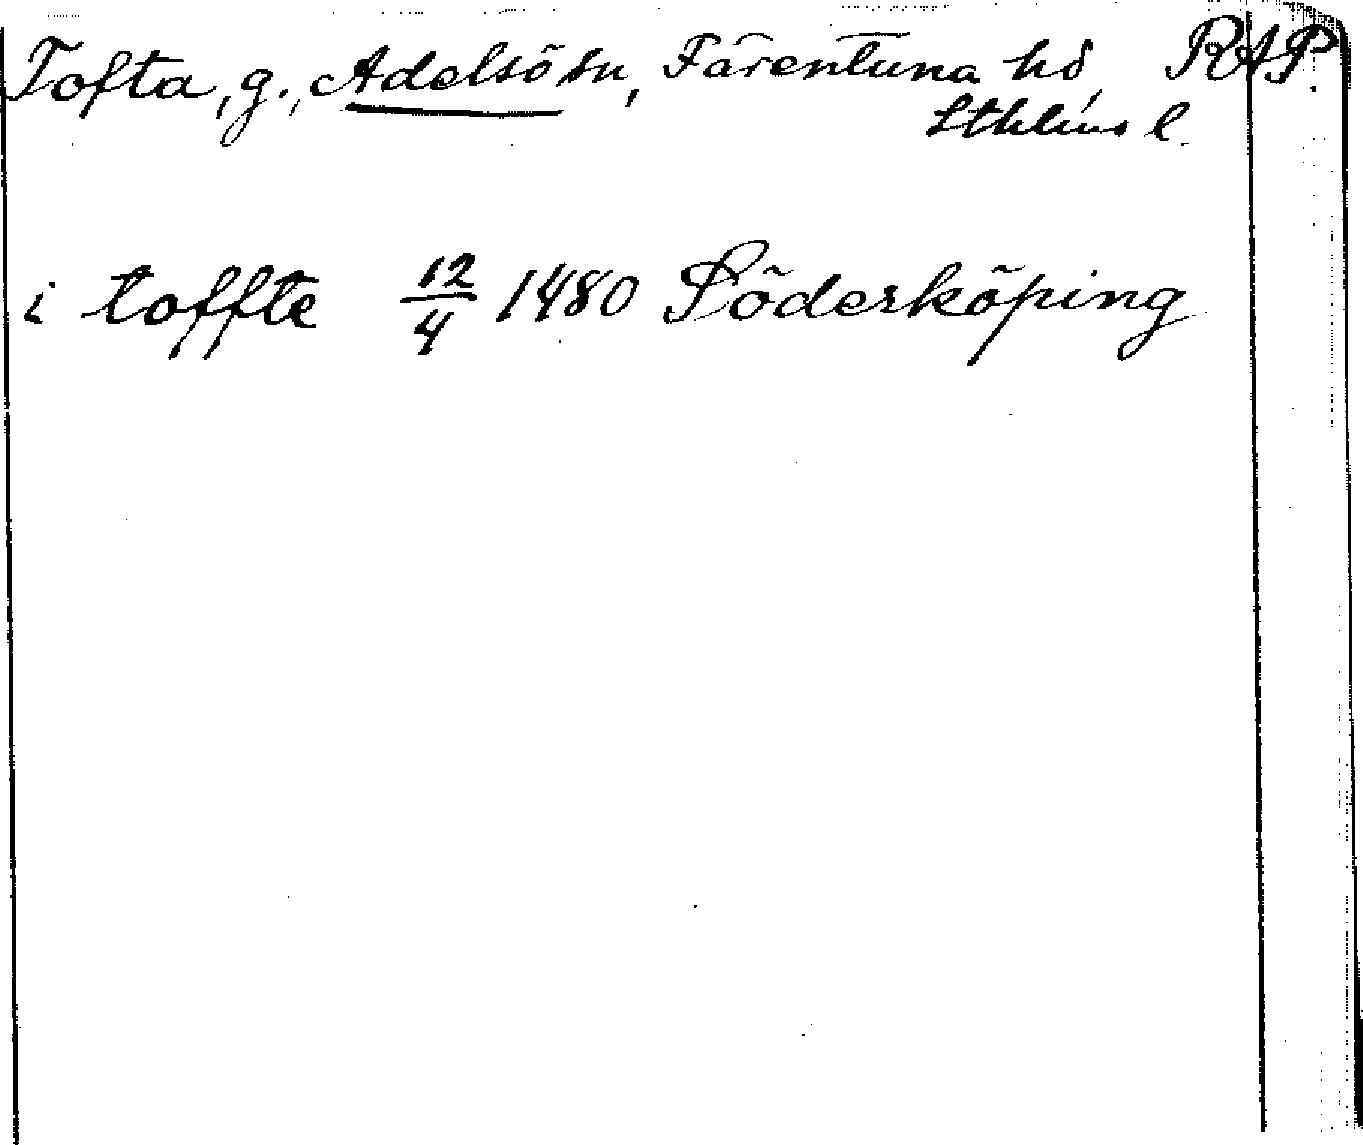 Tofta, g., Adelsö sn, Färentuna hd, RAP
Sthlms l.
i toffte 12/4 1480 Söderköping